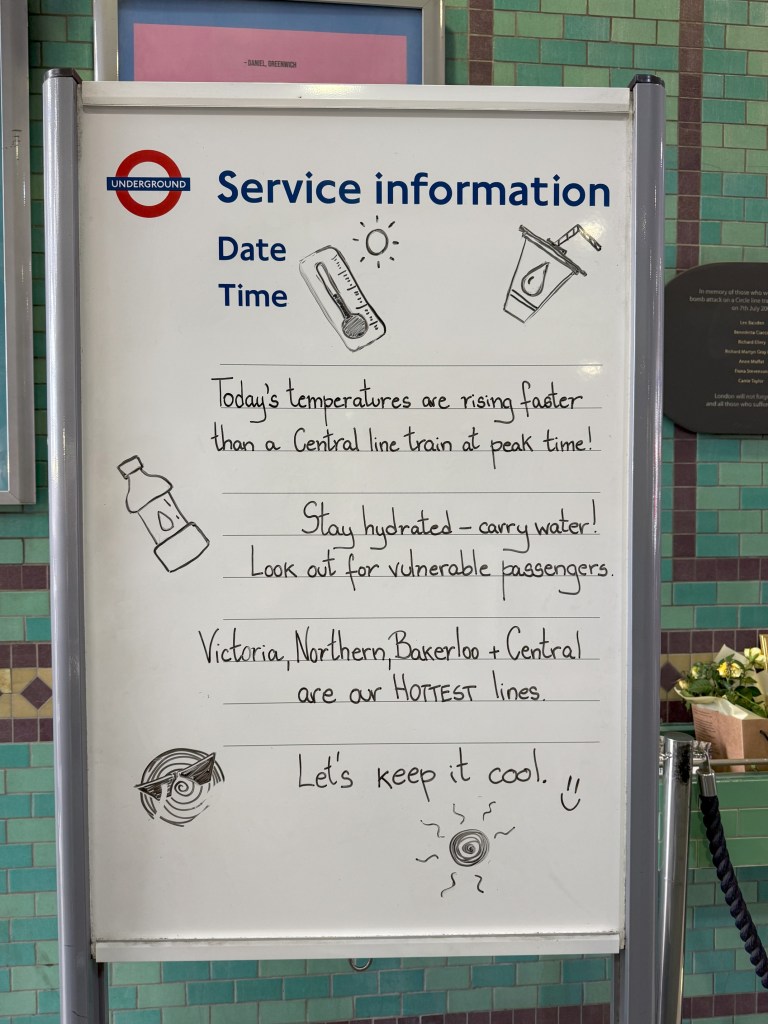 - DANIEL, GREENWICH
UNDERGROUND
Service information
Date
Time
Today's temperatures are rising faster
than a Central line train at peak time!
Stay hydrated – carry water!
Look out for vulnerable passengers.
Victoria, Northern, Bakerloo + Central
are our HOTTEST lines.
Let's keep it cool.
In memory of those who
bomb attack on a Circle line
on 7th July
Richard Ellery
Anne Moffat
Carrie Taylor
London will not
and all those who